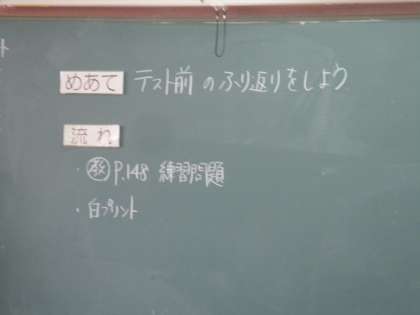 めあて テスト前のふり返りをしよう
流れ
・教 P.148 練習問題
・白プリント